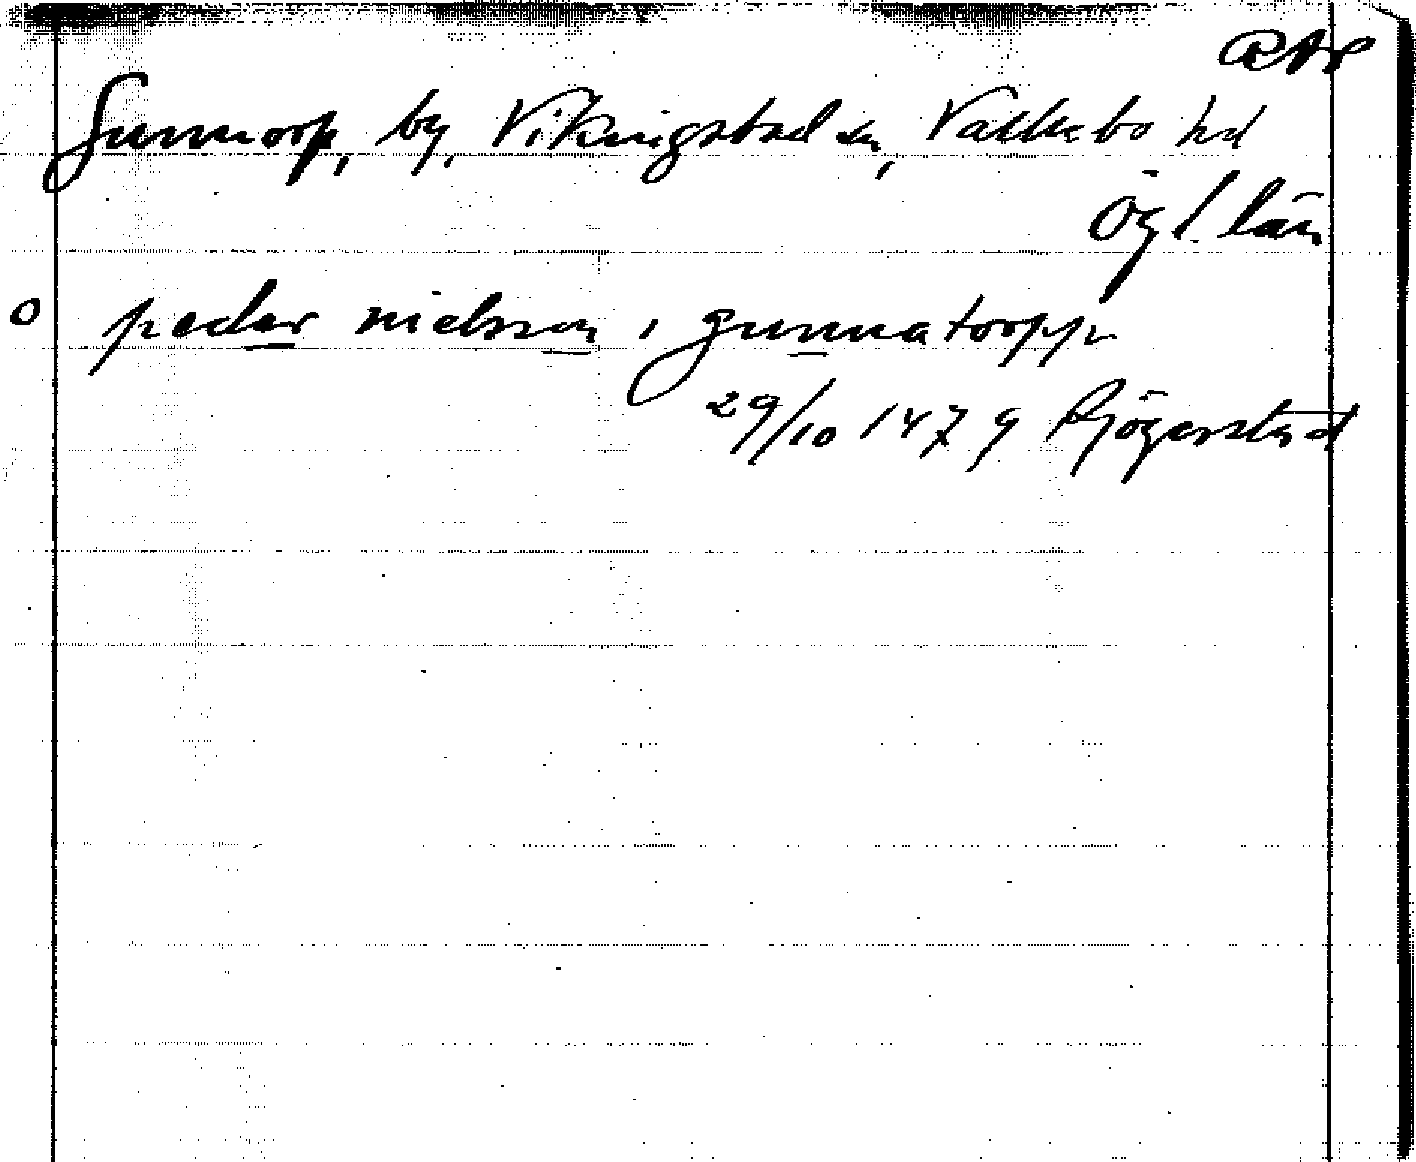 RAP
Gunnorp, by, Vikingstad sn, Valkebo hd
Ögl. län
o peder nielsson i gunnatorpp
29/10 1479 Rjögerstad